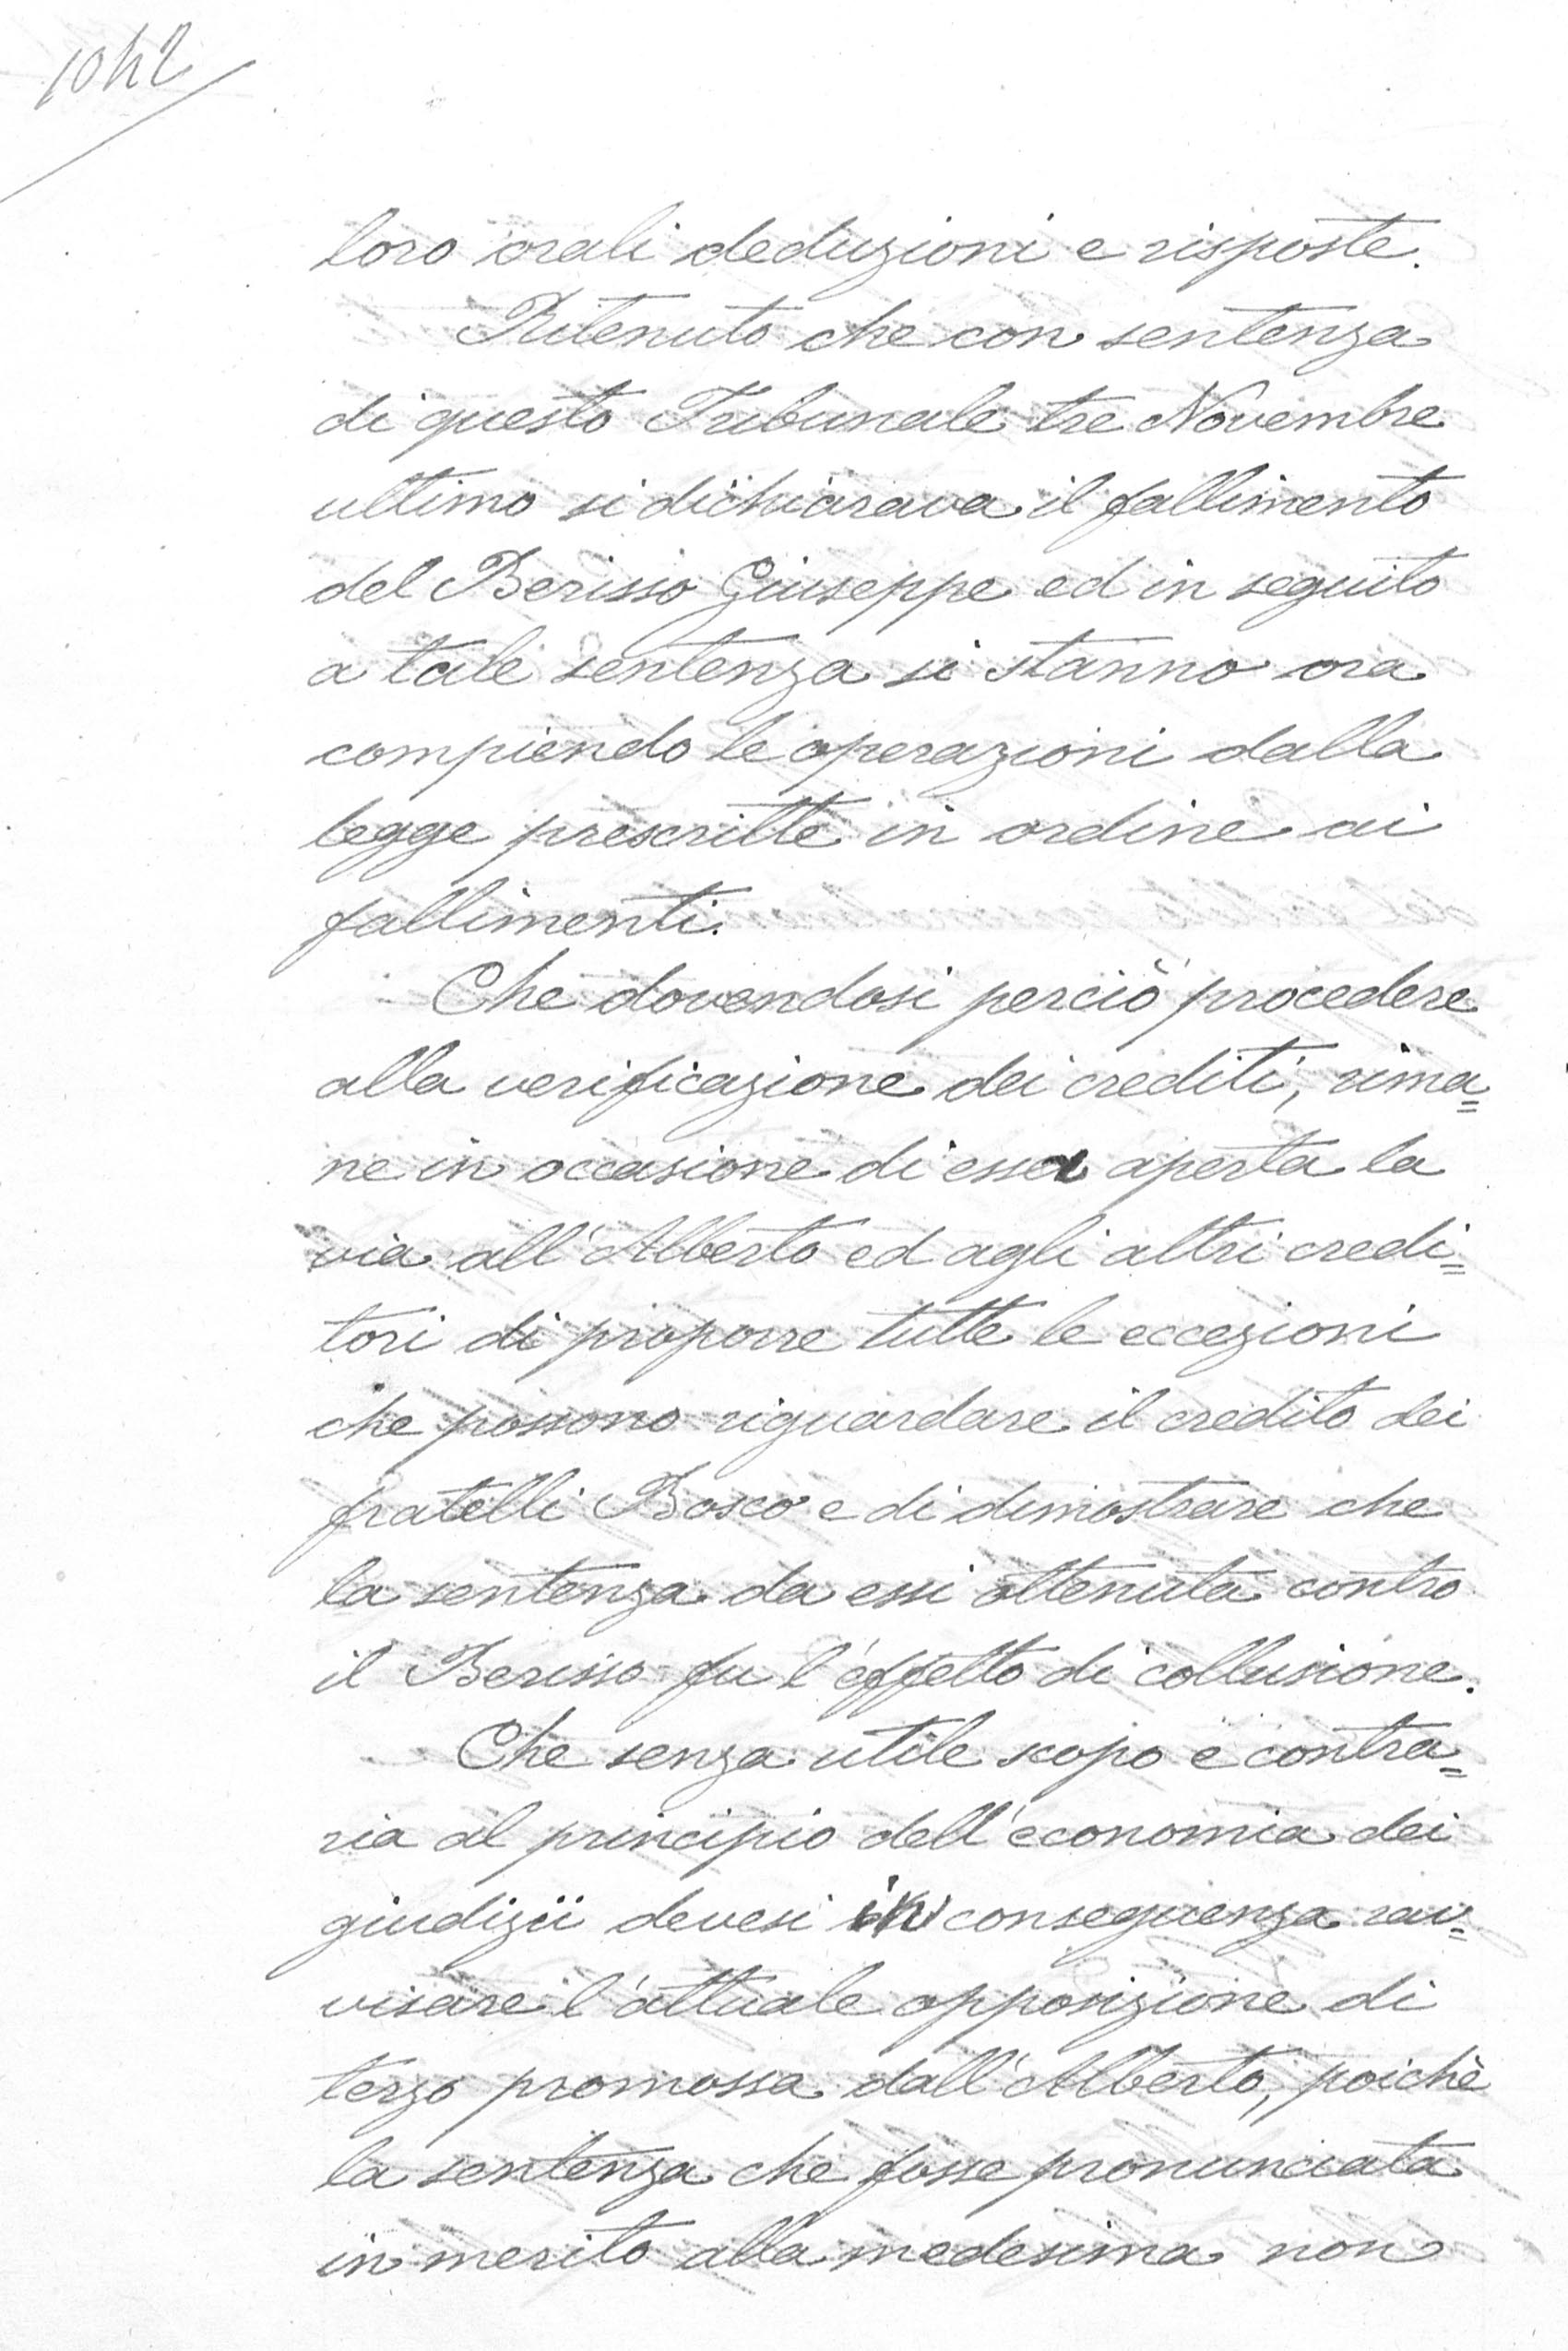 1042
loro orali deduzioni e risposte.
Ritenuto che con sentenza
di questo Tribunale tre Novembre
ultimo si dichiarava il fallimento
del Berisso Giuseppe ed in seguito
a tale sentenza si stanno ora
compiendo le operazioni dalla
legge prescritte in ordine ai
fallimenti.
Che dovendosi perciò procedere
alla verificazione dei crediti, rima=
ne in occasione di essa aperta la
via all'Alberto ed agli altri credi=
tori di proporre tutte le eccezioni
che possono riguardare il credito dei
fratelli Bosco e di dimostrare che
la sentenza da essi ottenuta contro
il Berisso fu l'effetto di collusione.
Che senza utile scopo e contra=
ria al principio dell'economia dei
giudizii devesi in conseguenza rav=
visare l'attuale opposizione di
terzo promossa dall'Alberto, poichè
la sentenza che fosse pronunciata
in merito alla medesima non